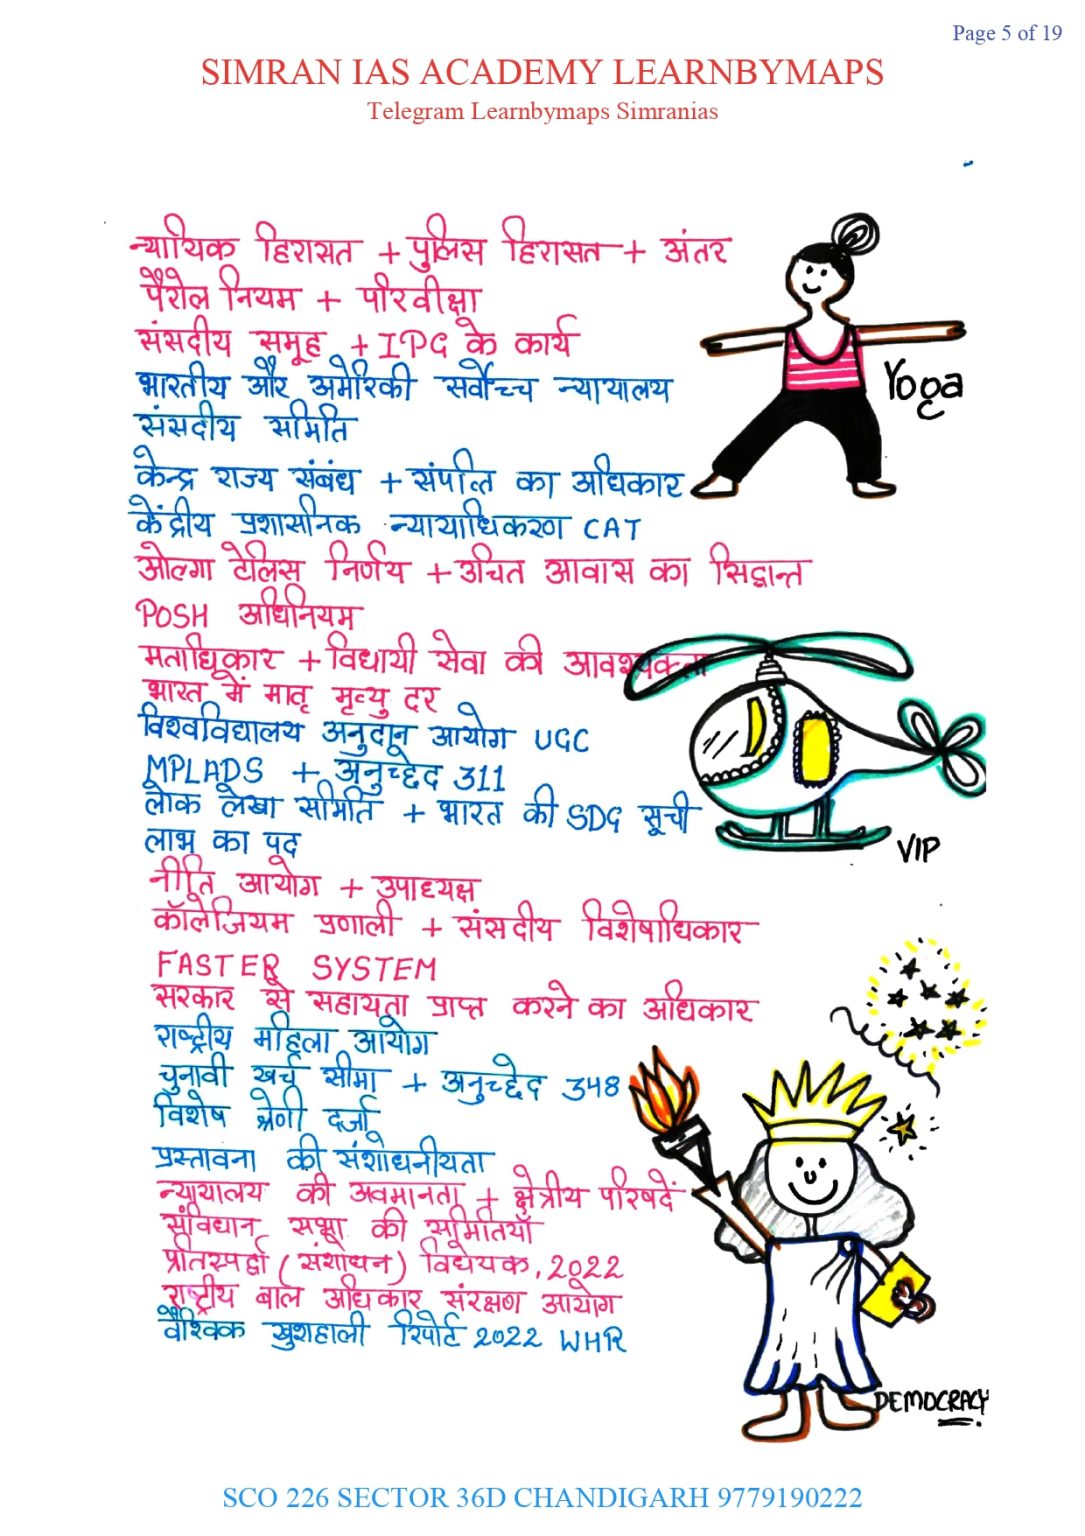 Page 5 of 19
SIMRAN IAS ACADEMY LEARNBYMAPS
Telegram Learnbymaps Simranias
न्यायिक हिरासत + पुलिस हिरासत + अंतर
पैरोल नियम + परिवीक्षा
संसदीय समूह + IPG के कार्य
भारतीय और अमेरिकी सर्वोच्च न्यायालय
संसदीय समिति
केन्द्र राज्य संबंध + संपत्ति का अधिकार
केंद्रीय प्रशासनिक न्यायाधिकरण CAT
ओल्गा टेलिस निर्णय + उचित आवास का सिद्धान्त
POSH अधिनियम
मताधिकार + विधायी सेवा की आवश्यकता
भारत में मातृ मृत्यु दर
विश्वविद्यालय अनुदान आयोग UGC
MPLADS + अनुच्छेद 311
लोक लेखा समिति + भारत की SDG सूची
लाभ का पद
नीति आयोग + उपाध्यक्ष
कॉलेजियम प्रणाली + संसदीय विशेषाधिकार
FASTER SYSTEM
सरकार से सहायता प्राप्त करने का अधिकार
राष्ट्रीय महिला आयोग
चुनावी खर्च सीमा + अनुच्छेद 348
विशेष श्रेणी दर्जा
प्रस्तावना की संशोधनीयता
न्यायालय की अवमानता + क्षेत्रीय परिषदें
संविधान सभा की समितियाँ
प्रतिस्पर्द्धा (संशोधन) विधेयक, 2022
राष्ट्रीय बाल अधिकार संरक्षण आयोग
वैश्विक खुशहाली रिपोर्ट 2022 WHR
Yoga
VIP
DEMOCRACY
SCO 226 SECTOR 36D CHANDIGARH 9779190222